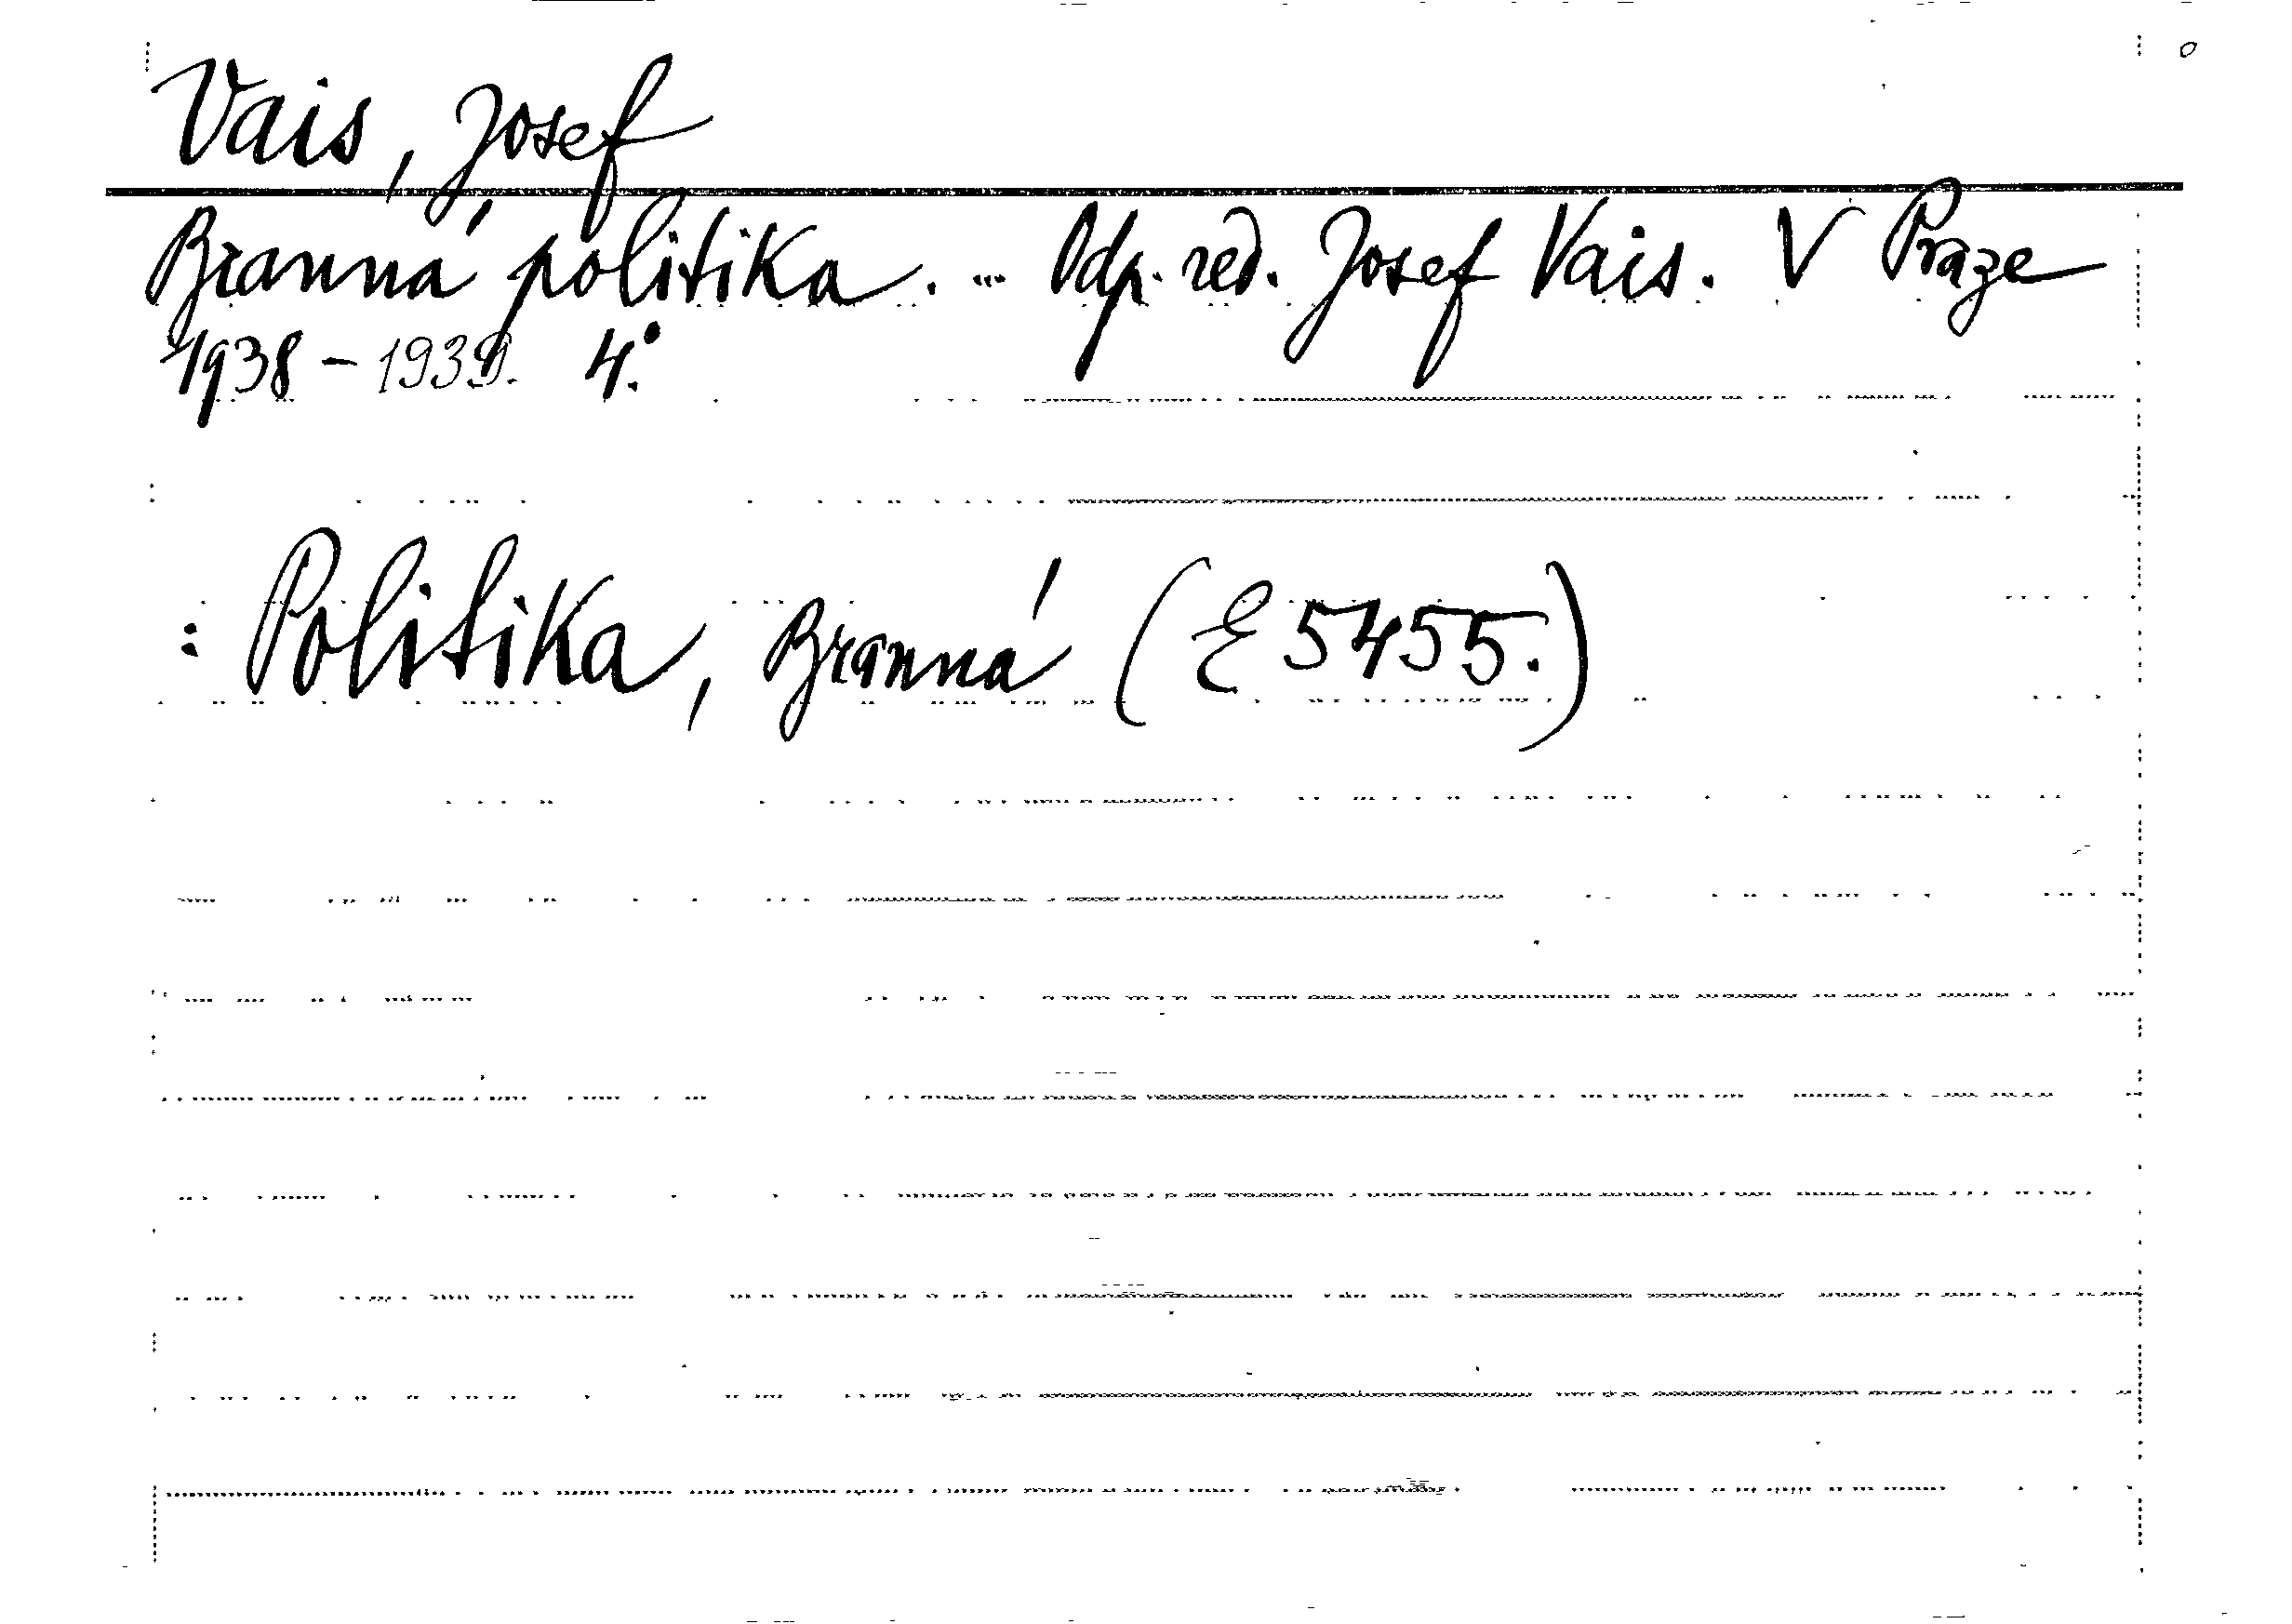 Vais, Josef
Branná politika. ... Odp. red. Josef Vais. V Praze
1938 - 1939. 4°.
: Politika, Branná (E 5455.)